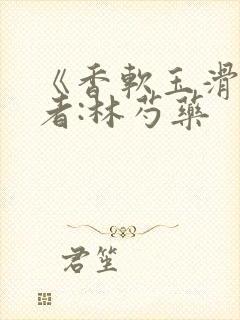 《香軟玉滑
者:林芍藥
君笙